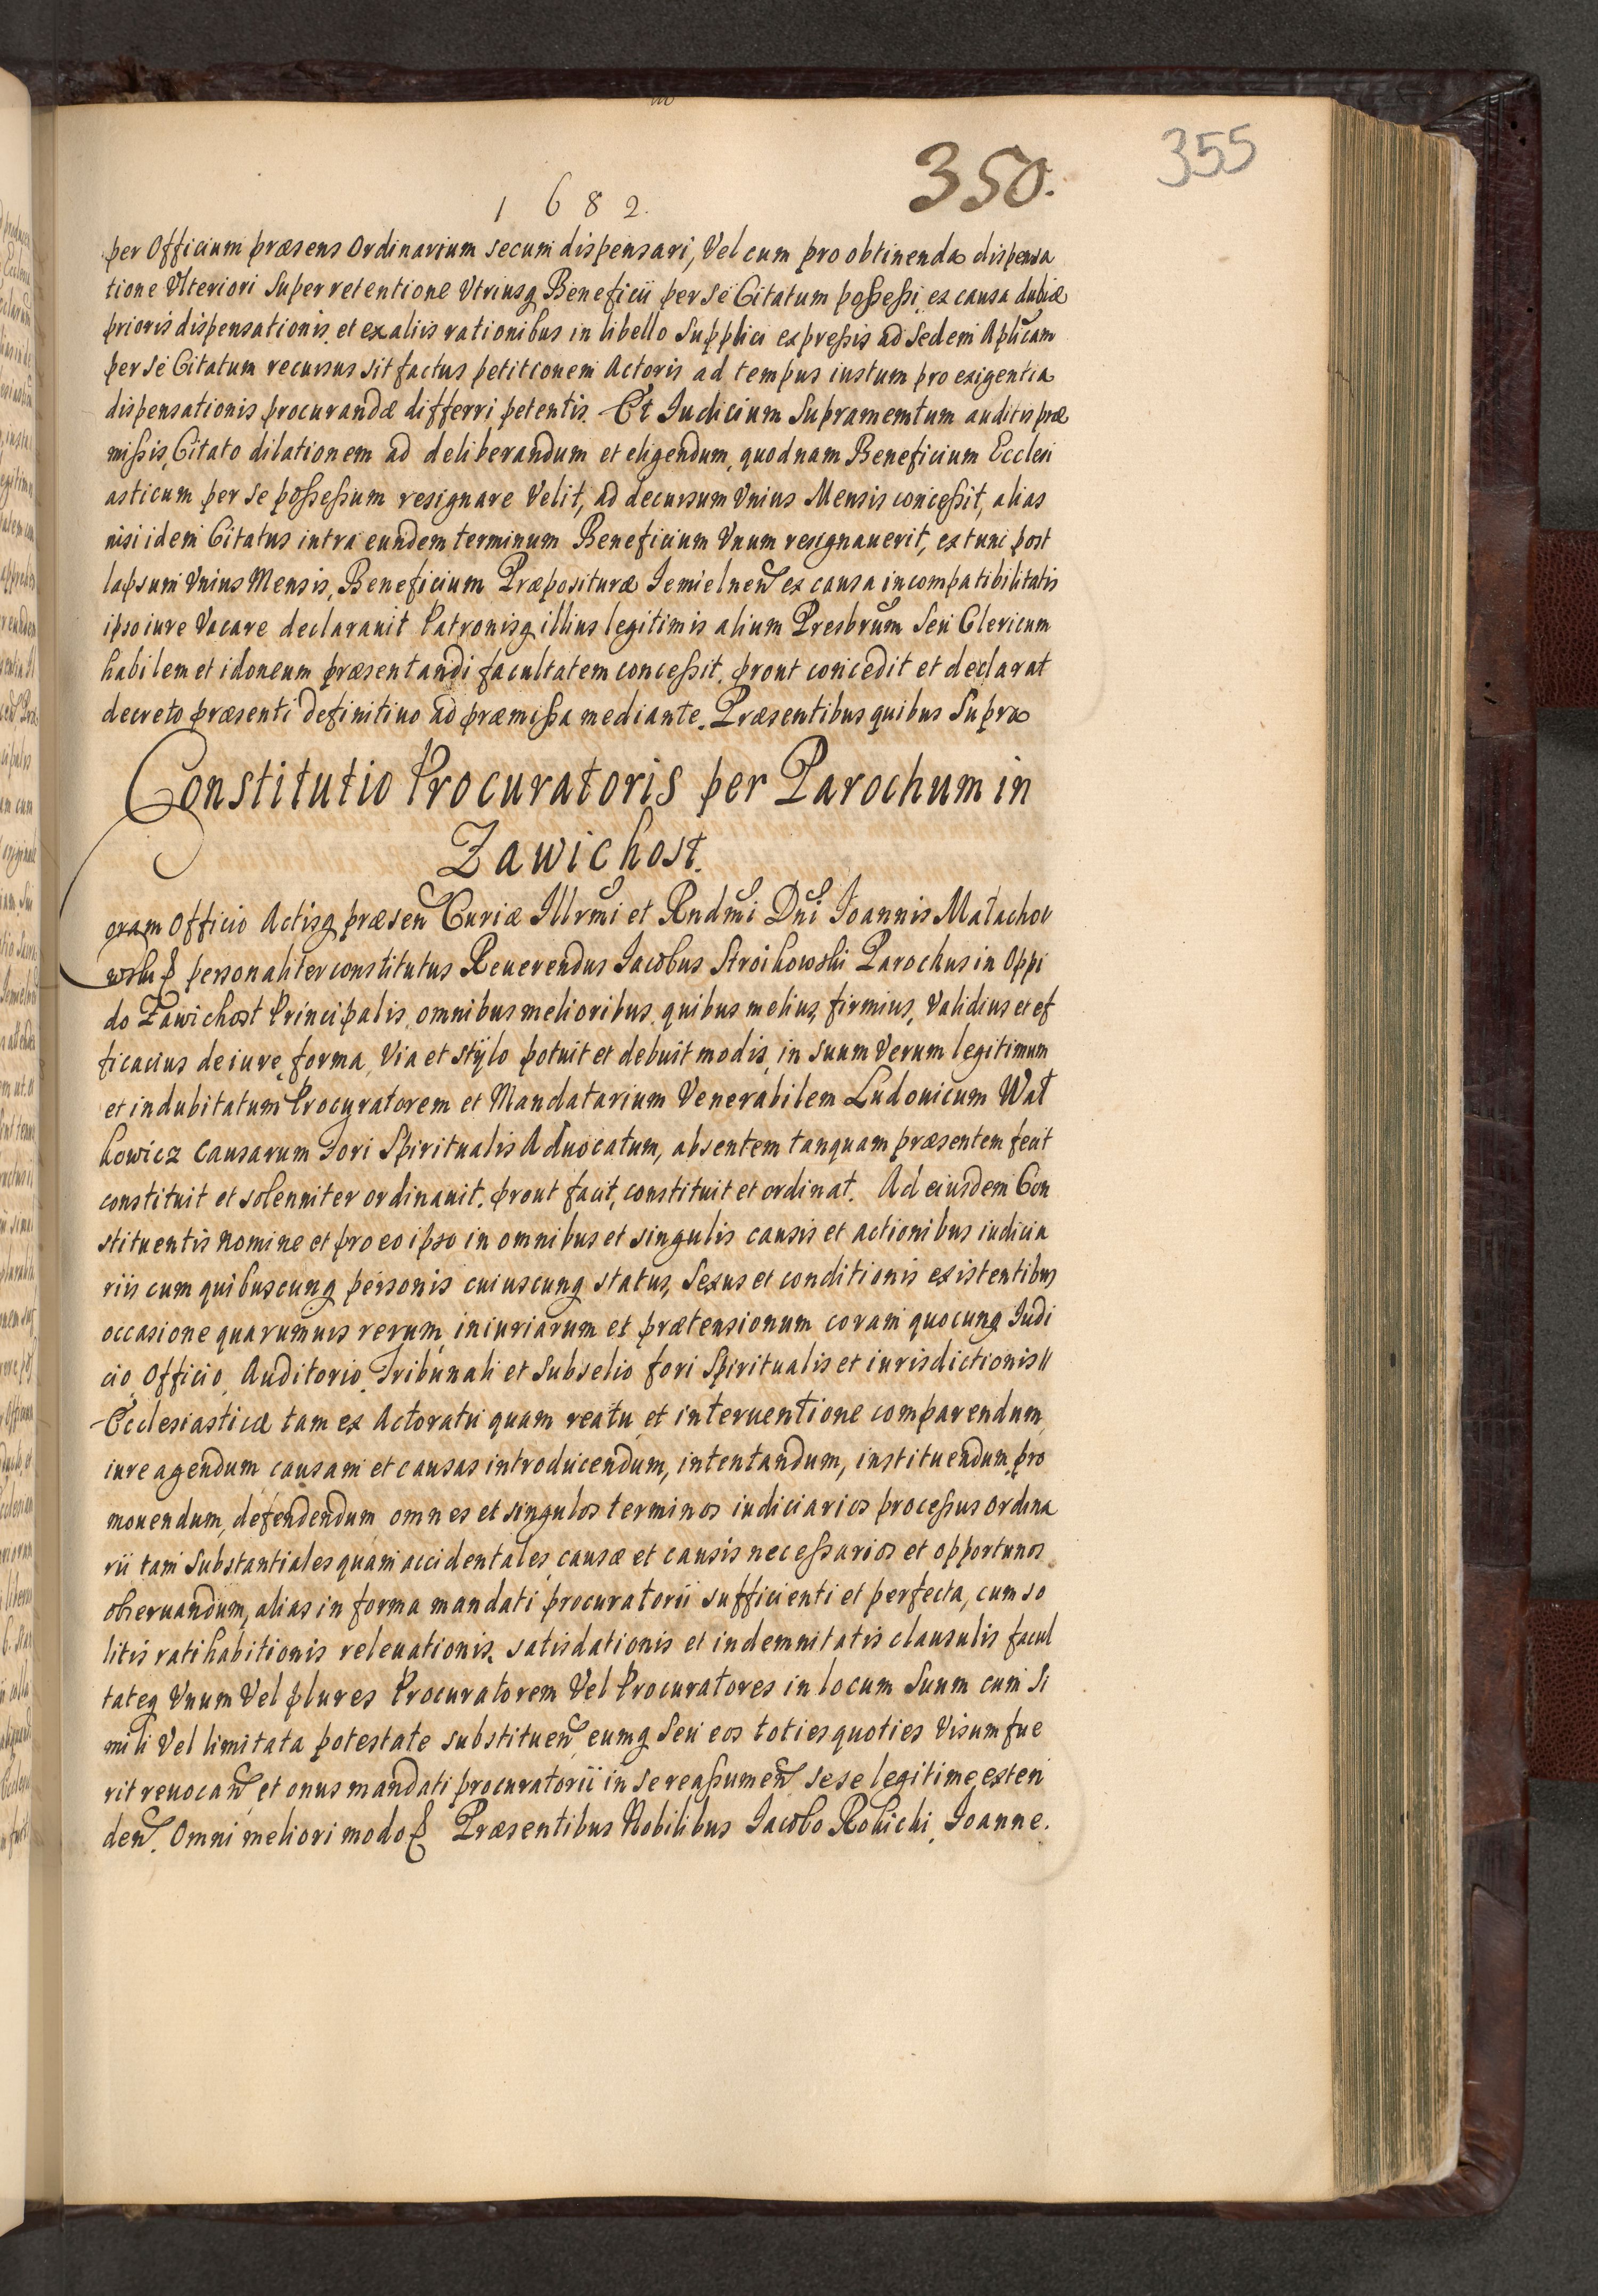 355
350.
1682.
per Officium præsens Ordinarium secum dispensari, Vel cum pro obtinenda dispensa
tione Vlteriori Super retentione Vtriusq Beneficii per se Citatum possessi, ex causa dubiæ
prioris dispensationis, et ex aliis rationibus in libello Supplici expressis ad Sedem Aplicam
per se Citatum recursus sit factus petitionem Actoris ad tempus iustum pro exigentia
dispensationis procurandæ differri petentis. Et Iudicium Supramemtum auditis præ
missis, Citato dilationem ad deliberandum et eligendum, quodnam Beneficium Eccleri
asticum per se possessum resignare Velit, ad decursum Vnius Mensis concessit, alias
nisi idem Citatus intra eundem terminum Beneficium Vnum resignauerit, ex tunc post
lapsum Vnius Mensis, Beneficium Præposituræ Iemielnen ex causa incompatibilitatis
ipso iure Vacare declarauit Patronisq illius legitimis alium Presbrum Seu Clericum
habilem et idoneum præsentandi facultatem concessit, prout concedit et declarat
decreto præsenti definitiuo ad præmissa mediante. Præsentibus quibus Supra
Constitutio Procuratoris per Parochum in
Zawichost.
oram Officio Actisq præsen Curiæ Illrmi et Rndmi Dni Ioannis Małachow
wski personaliter constitutus Reuerendus Iacobus Stroikowski Parochus in Oppi
do Zawichost Principalis, omnibus melioribus, quibus melius, firmius, Validius et ef
ficacius de iure, forma, Via et stÿlo potuit et debuit modis, in suum Verum legitimum
et indubitatum Procuratorem et Mandatarium Venerabilem Ludouicum Wał
kowicz Causarum Fori Spiritualis Aduocatum, absentem tanquam præsentem fecit
constituit et solenniter ordinauit, prout facit, constituit et ordinat. Ad eiusdem Con
stituentis nomine et pro eo ipso in omnibus et singulis causis et actionibus iudicia
riis cum quibuscunq personis cuiuscunq status, Sexus et conditionis existentibus
occasione quarumuis rerum, iniuriarum et prætensionum coram quocunq Iudi
cio, Officio, Auditorio, Tribunali et Subselio fori Spiritualis et iurisdictionis
Ecclesiasticæ tam ex Actoratu quam reatu et interuentione comparendum,
iure agendum causam et causas introducendum, intentandum, instituendum, pro
mouendum, defendendum omnes et singulos terminos iudiciarios processus ordina
rii tam Substantiales quam accidentales, causæ et causis necessarios et opportunos
obseruandum, alias in forma mandati procuratorii sufficienti et perfecta, cum so
litis ratihabitionis releuationis, satisdationis et indemnitatis clausulis facul
tateq Vnum Vel plures Procuratorem Vel Procuratores in locum Suum cum Si
mili Vel limitata potestate substituen, eumq Seu eos toties quoties Visum fue
rit reuocan, et onus mandati procuratorii in se reassumen sese legitime exten
den. Omni meliori modo Præsentibus Nobilibus Iacobo Rolicki, Ioanne.